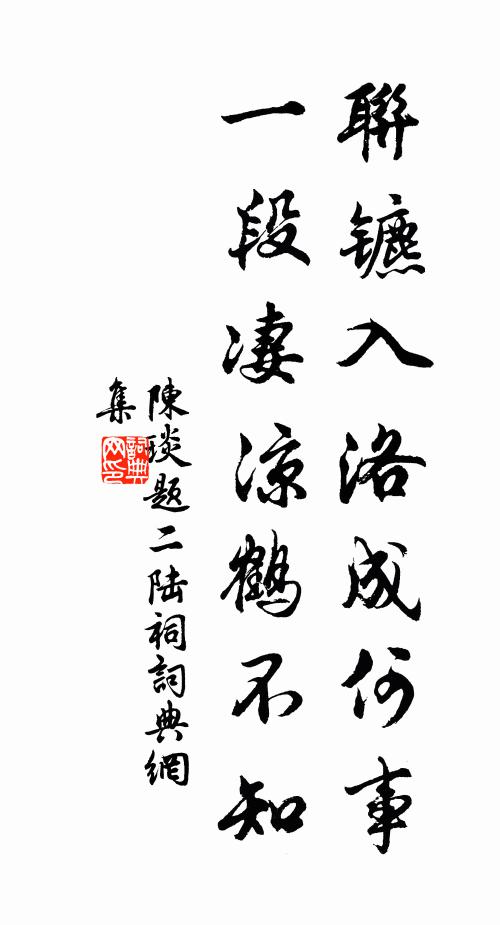 聯镳入洛成何事
一段凄涼鶴不知
陳琰题二陆祠詞典網
集
詞典
网印